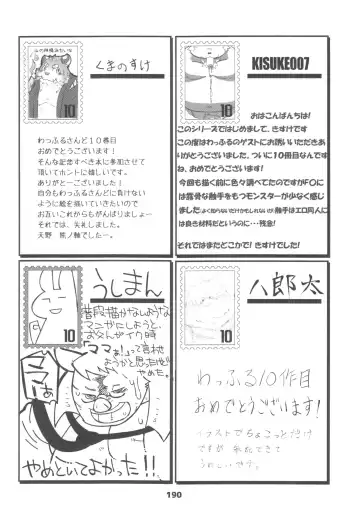 くまのすけ
10
わっふるさんど１０冊目
おめでとうございます！
そんな記念すべき本に参加させて
頂いてホントに嬉しいです。
ありがとーございました！
自分もわっふるさんどに負けない
ように絵を描いていきたいので
お互いこれからもがんばりましょー
それでは、失礼しました。
天野　熊ノ軸でしたー。
KISUKE007
10
おはこんばんちは！
このシリーズではじめまして、きすけです
この度はわっふるのゲストにお誘いいただきあ
りがとうございました。ついに10冊目なんです
ね、おめでとうございます！
今回も描く前に色々調べてたのですがFOに
は露骨な触手をもつモンスターが少なく感じ
ました よく知らないだけかもしれないが 触手はエロ同人に
は良き材料だというのに・・・残念！
それではまたどこかで！きすけでした！
うしまん
10
普段描かなしような
マニャにしようと、
お父んがイク時
「ママぁ！」って言わせ
ようかと思ったけど
やめた。
ママぁ
やめといてよかった！！
八郎太
10
わっふる10作目
おめでとうございます！
イラストでちょこっとだけ
ですが
うれしいです。
190